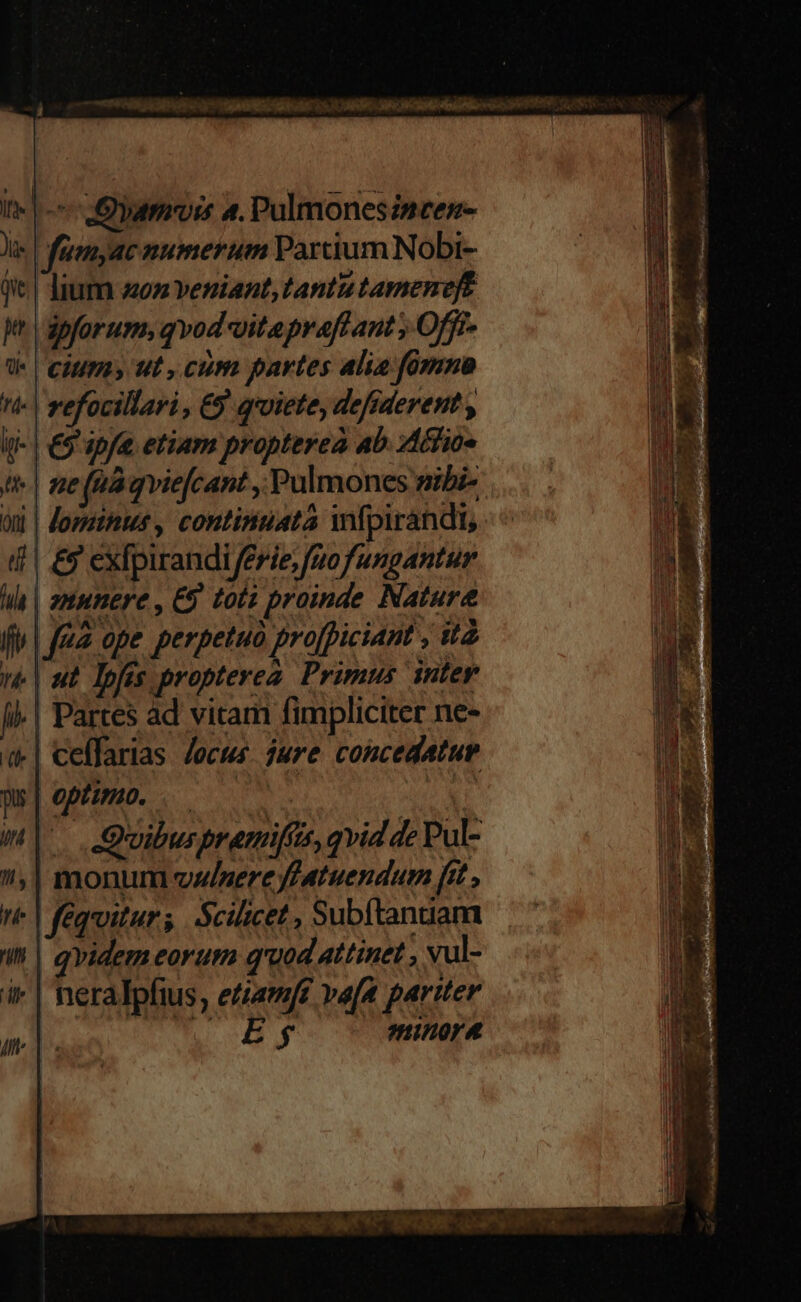 Qvamvis a. Pulmones in cen-
ſum, ac numerum Partium Nobi-
lium non veniant, tantū tamen eſt
ipſorum, qvod vitæ præſtant, Offi-
cium, ut, cùm partes aliæ ſomno
refocillari, & qviete, deſiderent,
& ipſæ etiam proptereà ab Actio-
ne ſuâ qvieſcant, Pulmones nihi-
lominus, continuatâ inſpirandi,
& exſpirandi ſerie, ſuo fungantur
munere, & toti proinde Naturæ
ſuâ ope perpetuò proſpiciant, ità
ut Ipſis proptereà Primus inter
Partes ad vitam ſimpliciter ne-
ceſſarias locus jure concedatur
optimo.
Qvibus præmiſſis, qvid de Pul-
monum vulnere ſtatuendum ſit,
ſeqvitur; Scilicet, Subſtantiam
qvidem eorum qvod attinet, vul-
nera Ipſius, etiamſi vaſa pariter
E 5 minora